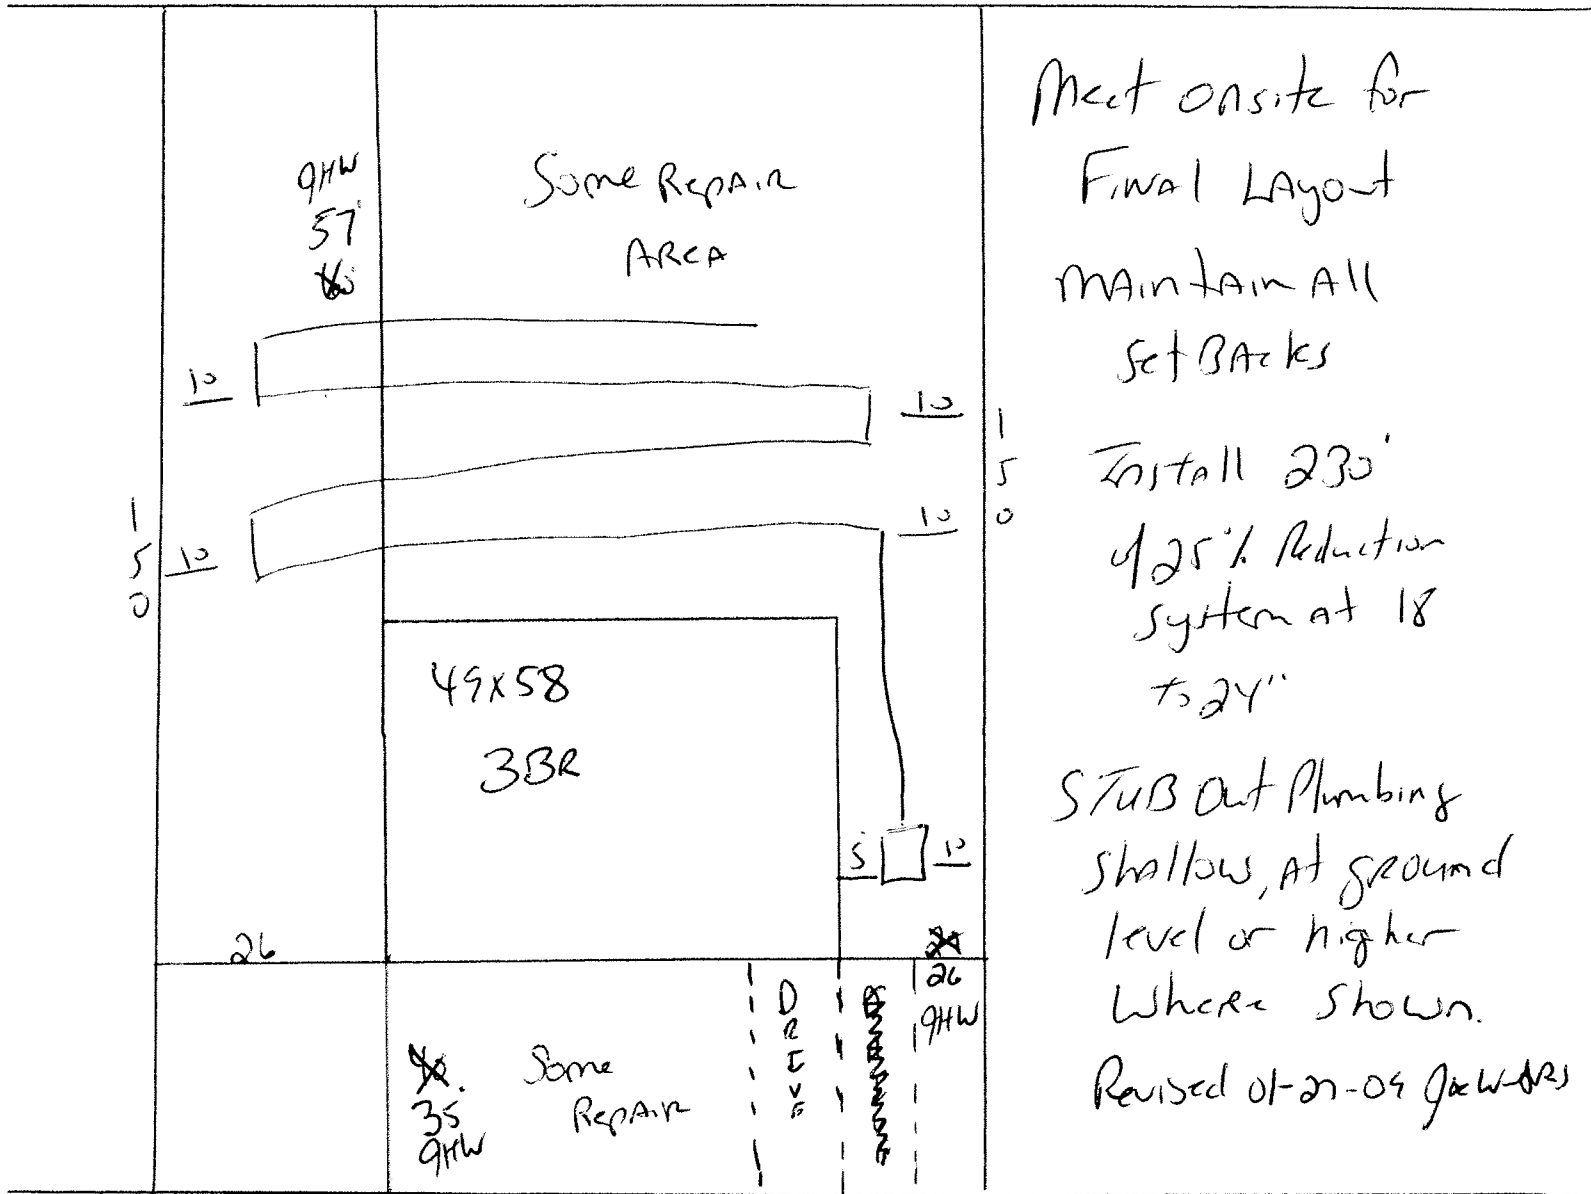 JHW
57'
Some Repair
Area
10
10
10
10
1
5
0
1
5
0
49x58
3BR
5
10
26
26
JHW
35
JHW
Some
Repair
DRIVE
Meet onsite for
Final Layout
Maintain All
SetBacks
Install 230'
of 25% Reduction
system at 18
to 24"
STUB Out Plumbing
shallow, at ground
level or higher
Where shown.
Revised